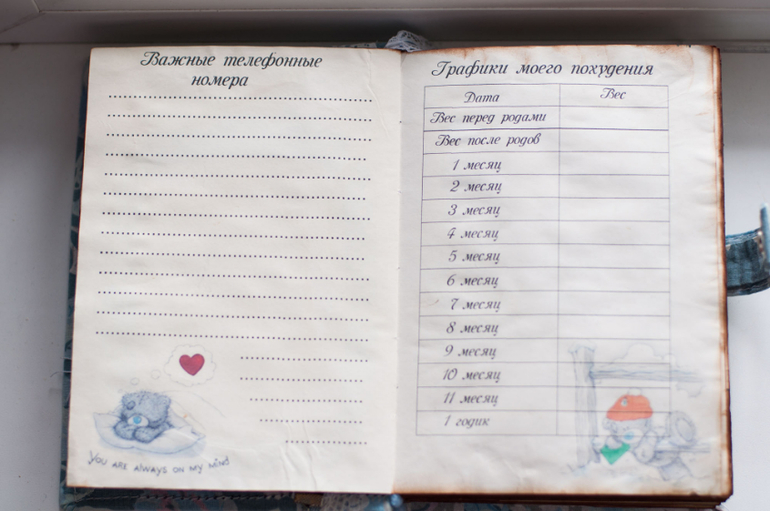 Важные телефонные
номера
YOU ARE ALWAYS ON MY MIND
Графики моего похудения
Дата Вес
Вес перед родами
Вес после родов
1 месяц
2 месяц
3 месяц
4 месяц
5 месяц
6 месяц
7 месяц
8 месяц
9 месяц
10 месяц
11 месяц
1 годик